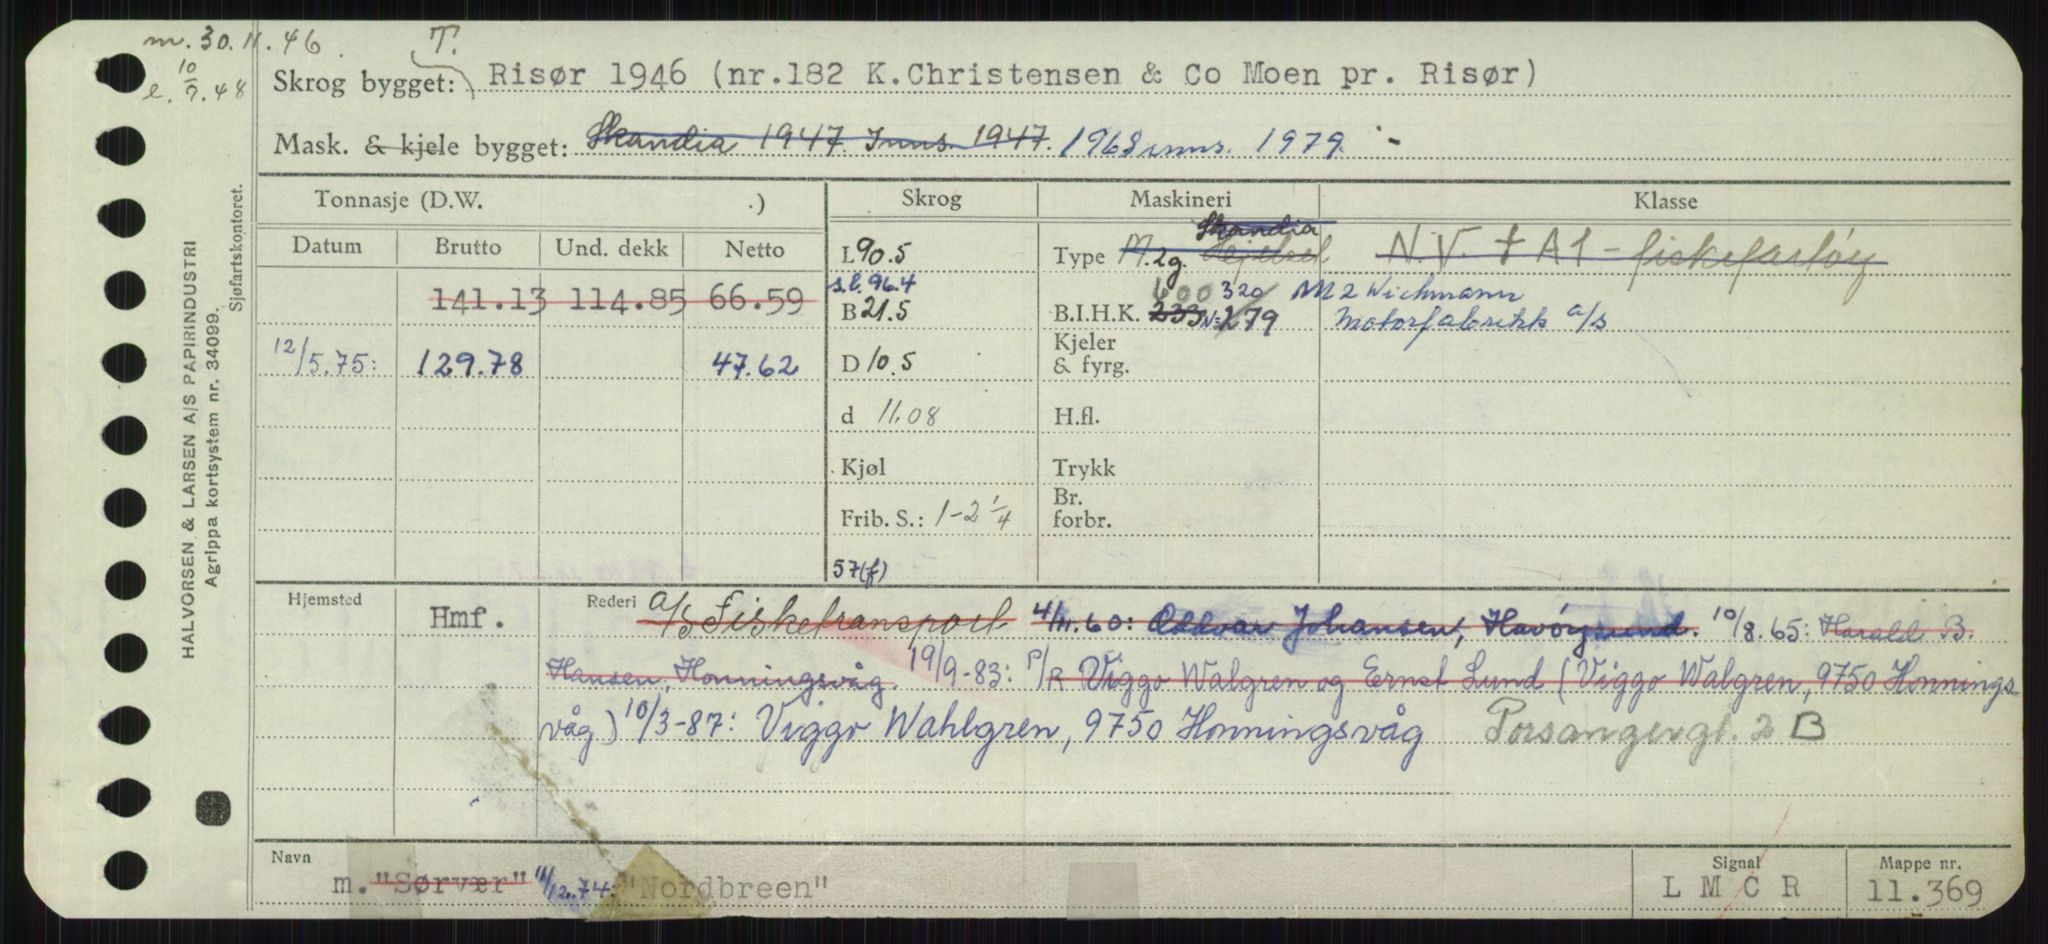 m. 30.11.46
e. 10/7.48
T.
Skrog bygget: Risør 1946 (nr.182 K.Christensen & Co Moen pr. Risør)
Mask. & kjele bygget: Skandia 1947. Inns. 1947. 1968 inns. 1979. -
Tonnasje (D.W. .)
Skrog
Maskineri
Klasse
Datum Brutto Und. dekk Netto
141.13 114.85 66.59
12/5.75: 129.78 47.62
L 90.5
s.l. 96.4
B 21.5
D 10.5
d 11.08
Kjøl
Frib. S.: 1-2 1/4
57(f)
Skandia
Type M. 2g.
600 320
B.I.H.K. 233 N: 279
Kjeler
& fyrg.
H.fl.
Trykk
Br.
forbr.
N.V. + A1 - fiskefartøy
M 2 Wichmann
Motorfabrikk a/s
Hjemsted Hmf.
Rederi a/s Fisketransport 4/11.60: Oddvar Johansen, Havøysund. 10/8.65: Harald B.
Hansen, Honningsvåg. 19/9-83: P/R Viggo Walgren og Ernst Lund (Viggo Walgren, 9750 Honnings-
våg) 10/3-87: Viggo Wahlgren, 9750 Honningsvåg Porsangergt. 2 B
Navn
m. "Sørvær" 11/12.74: "Nordbreen"
Signal
L M C R
Mappe nr.
11.369
HALVORSEN & LARSEN A/S PAPIRINDUSTRI
Agrippa kortsystem nr. 34099.
Sjøfartskontoret.